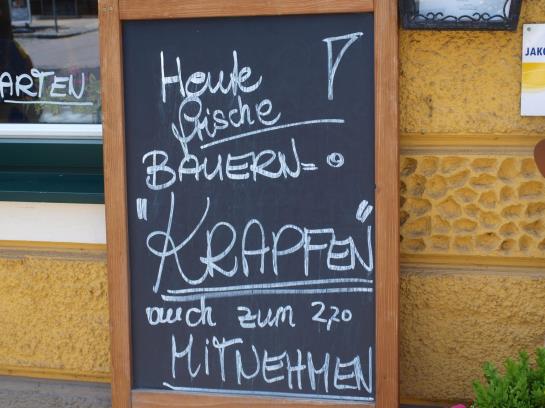 Heute !
frische
BAUERN=
"KRAPFEN"
auch zum 2,20
MITNEHMEN
ARTEN
JAKO